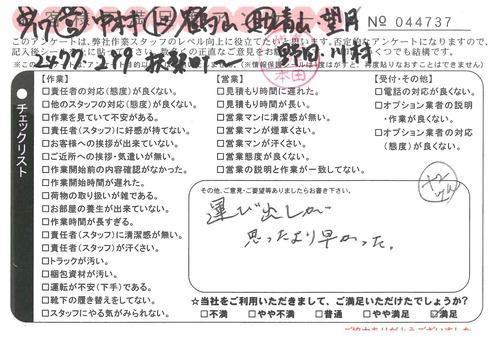 Nº 044737
このアンケートは、弊社作業スタッフのレベル向上に役立てたいと思います。否定的なアンケートになりますので、
2477-219
【作業】
□責任者の対応(態度)が良くない。
□他のスタッフの対応(態度)が良くない。
□作業を見ていて不安がある。
□責任者(スタッフ)に好感が持てない。
□お客様への挨拶が出来ていない。
□ご近所への挨拶・気遣いが無い。
□作業開始前の内容確認がなかった。
□作業開始時間が遅れた。
□荷物の取り扱いが雑である。
□お部屋の養生が出来ていない。
□作業時間が長すぎる。
□責任者(スタッフ)に清潔感が無い。
□責任者(スタッフ)が汗くさい。
□トラックが汚い。
□梱包資材が汚い。
□運転が不安(下手)である。
□靴下の履き替えをしてない。
□スタッフにやる気がみられない。
【営業】
□見積もり時間に遅れた。
□見積もり時間が長い。
□営業マンに清潔感が無い。
□営業マンが煙草くさい。
□営業マンが汗くさい。
□営業態度が良くない。
□営業の説明と作業が一致してない。
【受付・その他】
□電話の対応が良くない。
□オプション業者の説明
・作業が良くない。
□オプション業者の対応
(態度)が良くない。
チェックリスト
その他、ご意見・ご要望等ありましたらお書き下さい。
運び出しが
思ったより早かった。
☆当社をご利用いただきまして、ご満足いただけでしょうか?
□不満 □やや不満 □普通 □やや満足 ☑満足
ご協力ありがとうございました